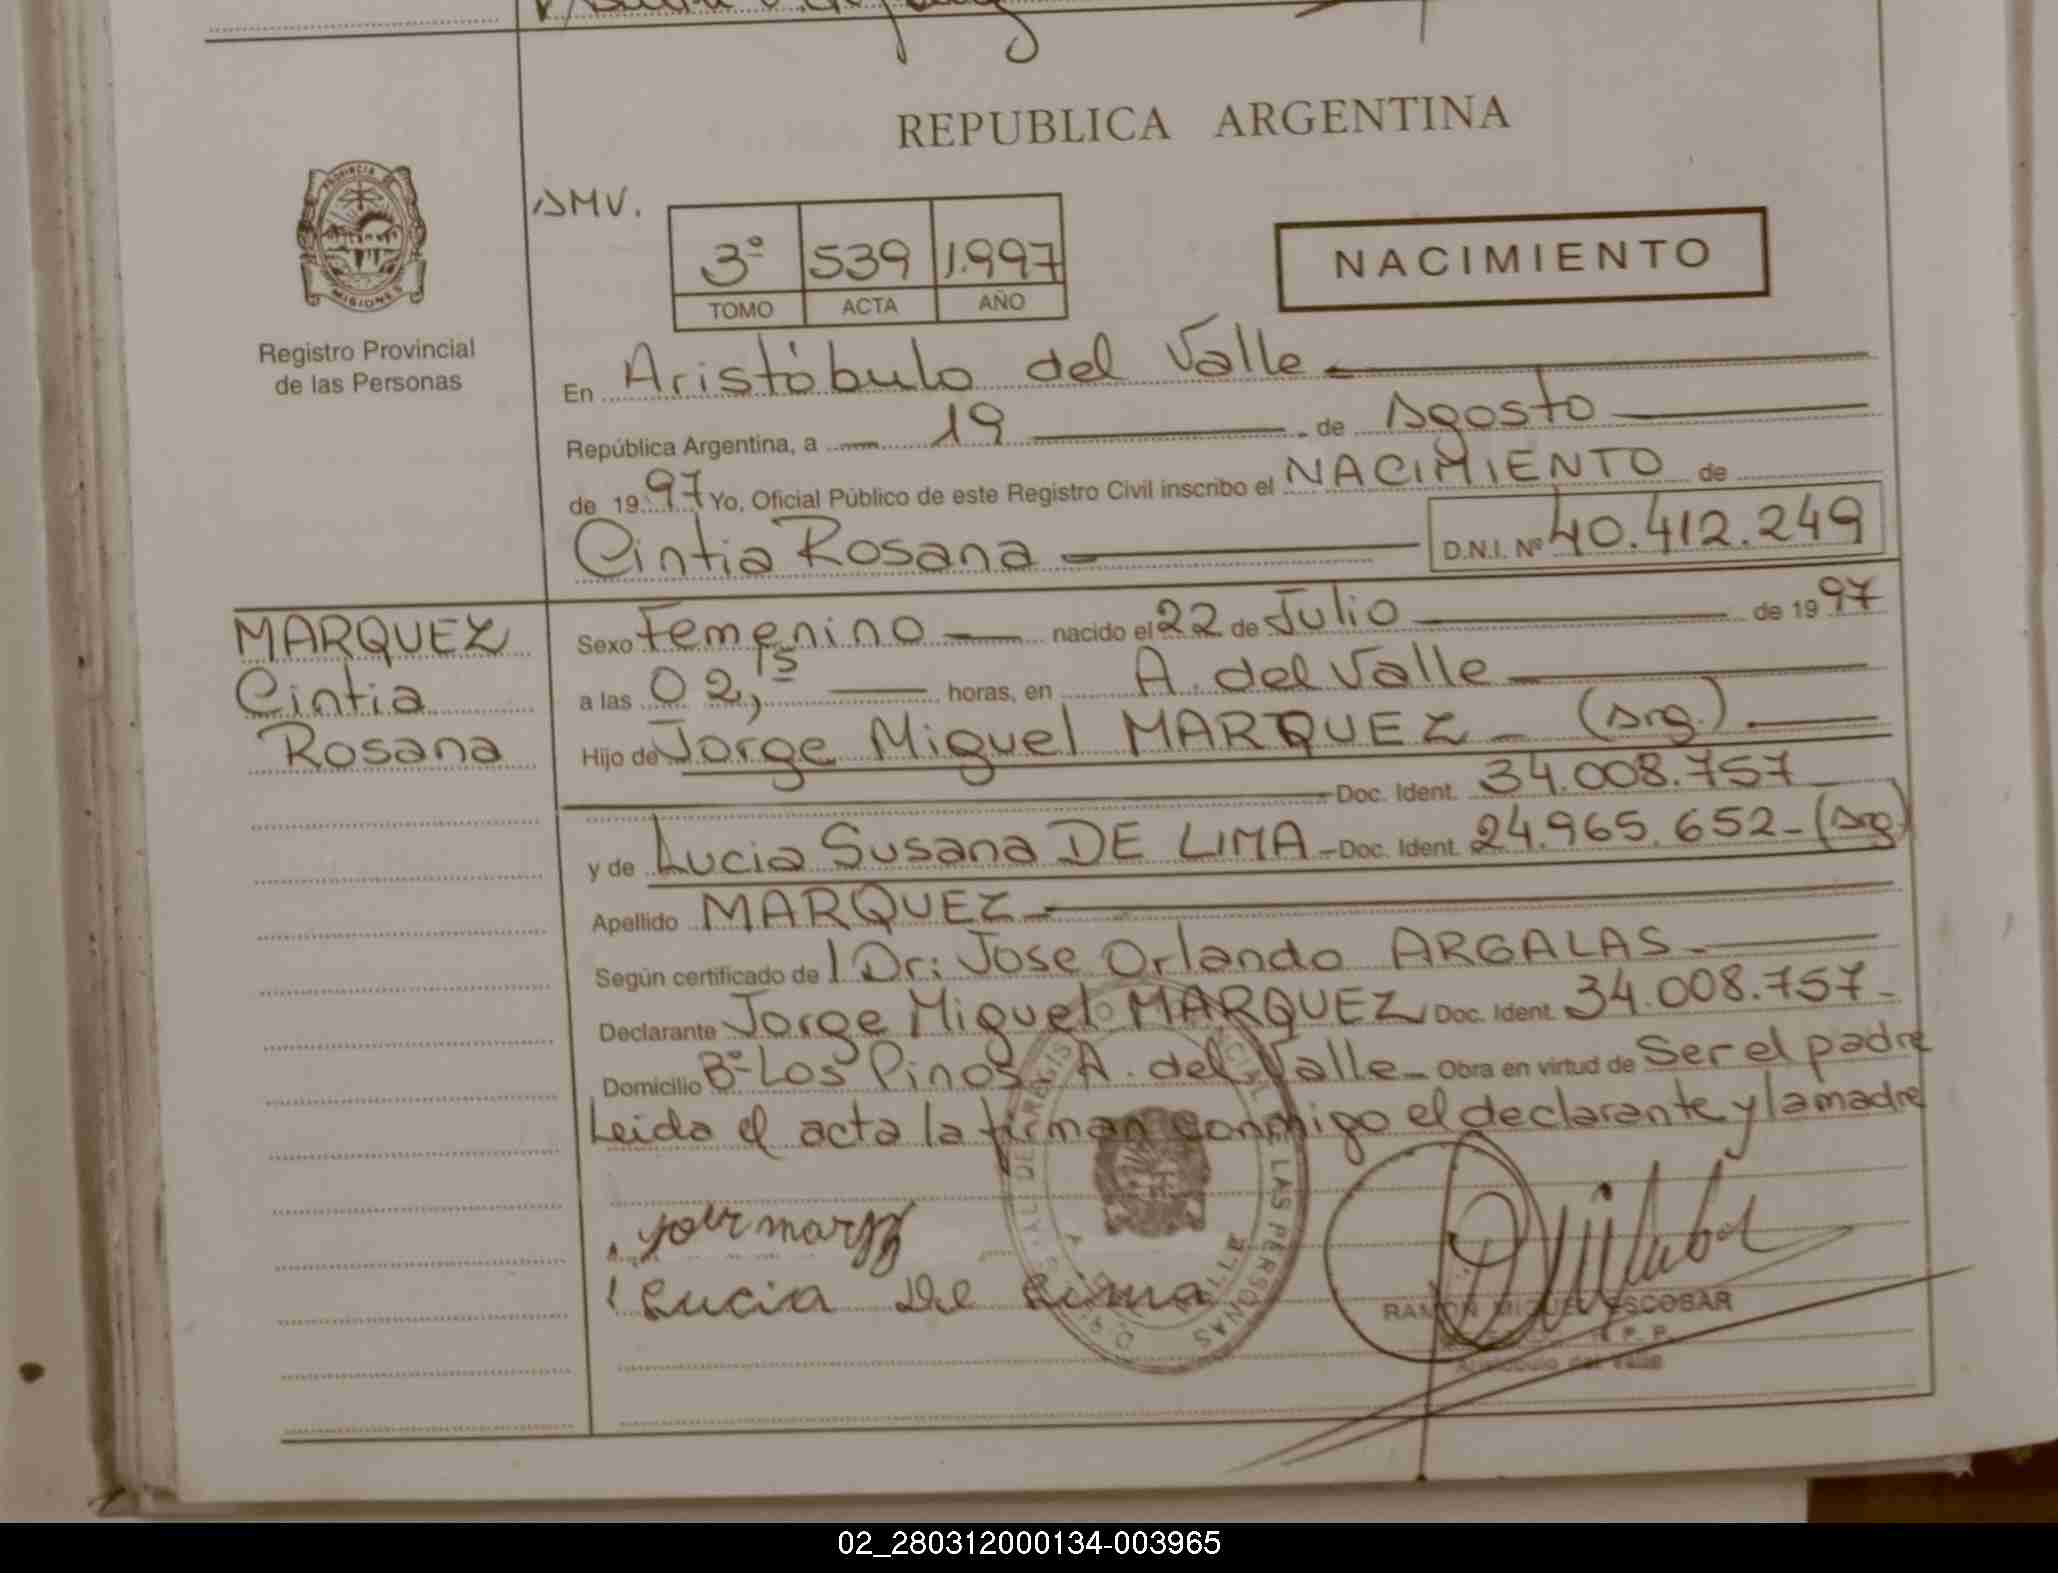 REPUBLICA ARGENTINA
PROVINCIA DE
MISIONES
Registro Provincial
de las Personas
AMV.
3º 539 1.997
TOMO ACTA AÑO
NACIMIENTO
En Aristóbulo del Valle
República Argentina, a 19 de Agosto
de 1997 Yo, Oficial Público de este Registro Civil inscribo el NACIMIENTO de
Cintia Rosana D.N.I. Nº 40.412.249
MARQUEZ
Cintia
Rosana
Sexo Femenino nacido el 22 de Julio de 1997
a las 02,15 horas, en A. del Valle
Hijo de Jorge Miguel MARQUEZ (Arg.)
Doc. Ident. 34.008.757
y de Lucia Susana DE LIMA Doc. Ident. 24.965.652 (Arg)
Apellido MARQUEZ
Según certificado de l Dr: Jose Orlando ARGALAS
Declarante Jorge Miguel MARQUEZ Doc. Ident. 34.008.757
Domicilio Bº Los Pinos. A. del Valle Obra en virtud de Ser el padre
Leida el acta la firman conmigo el declarante y la madre
Lucia De Lima
RAMON MIGUEL ESCOBAR
Aristóbulo del Valle
02_280312000134-003965